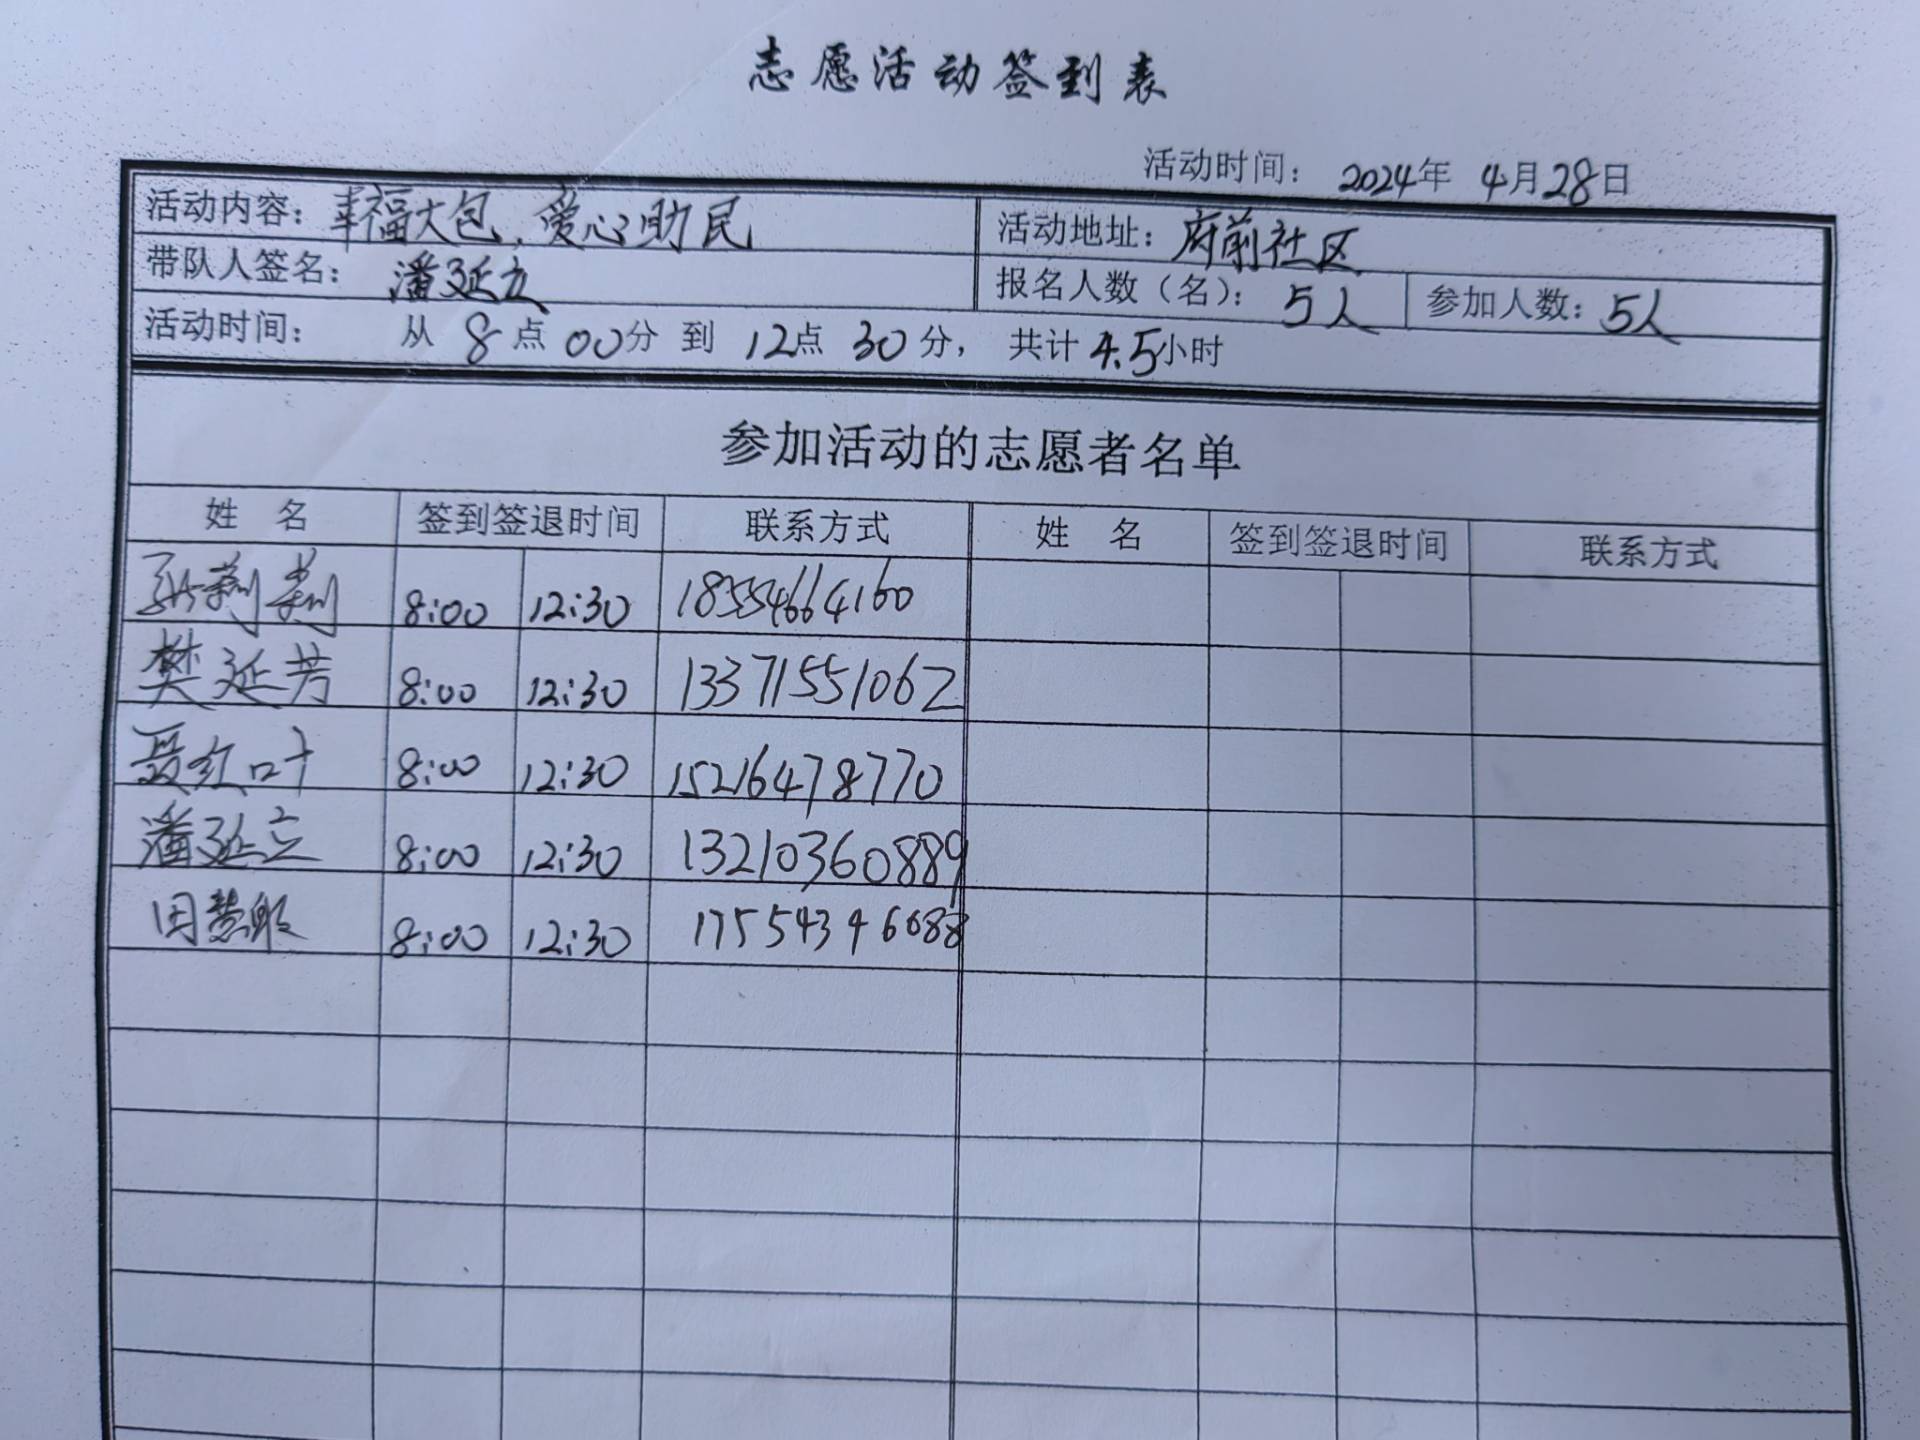 志愿活动签到表
活动时间： 2024年 4月28日
活动内容：幸福大包，爱心助民 活动地址：府前社区
带队人签名：潘延立 报名人数（名）：5人 参加人数：5人
活动时间： 从 8点 00分 到 12点 30分， 共计 4.5小时
参加活动的志愿者名单
姓 名 签到签退时间 联系方式 姓 名 签到签退时间 联系方式
孙莉莉 8:00 12:30 18554664160
樊延芳 8:00 12:30 13371551062
聂红叶 8:00 12:30 15216478770
潘延立 8:00 12:30 13210360889
8:00 12:30 17554346688